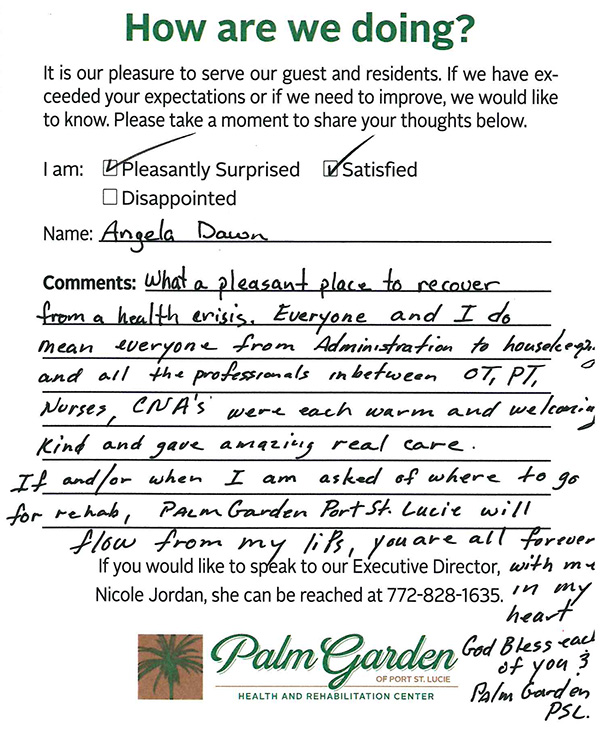 How are we doing?
It is our pleasure to serve our guest and residents. If we have ex-
ceeded your expectations or if we need to improve, we would like
to know. Please take a moment to share your thoughts below.
I am: ☑ Pleasantly Surprised ☑ Satisfied
☐ Disappointed
Name: Angela Dawn
Comments: What a pleasant place to recover
from a health crisis. Everyone and I do
mean everyone from Administration to housekeeping
and all the professionals inbetween OT, PT,
Nurses, CNA's were each warm and welcoming
kind and gave amazing real care.
If and/or when I am asked of where to go
for rehab, Palm Garden Port St. Lucie will
flow from my lips, you are all forever
with me
in my
heart
If you would like to speak to our Executive Director,
Nicole Jordan, she can be reached at 772-828-1635.
God Bless each
of you &
Palm Garden
PSL.
Palm Garden
OF PORT ST. LUCIE
HEALTH AND REHABILITATION CENTER